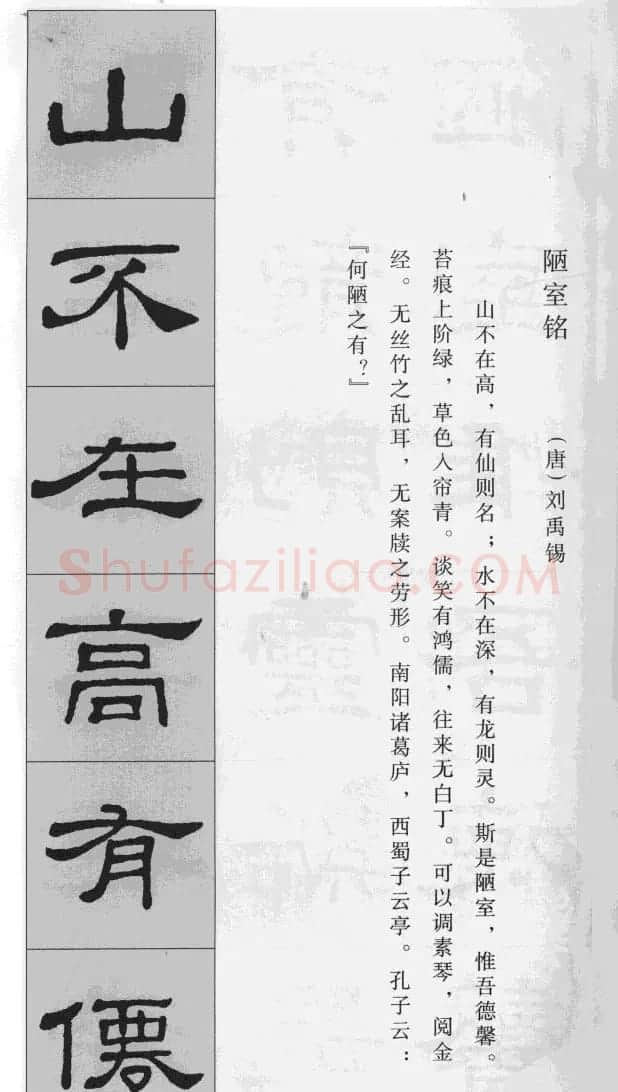 陋室铭 （唐）刘禹锡
山不在高，有仙则名；水不在深，有龙则灵。斯是陋室，惟吾德馨。
苔痕上阶绿，草色入帘青。谈笑有鸿儒，往来无白丁。可以调素琴，阅金
经。无丝竹之乱耳，无案牍之劳形。南阳诸葛庐，西蜀子云亭。孔子云：
『何陋之有？』
山不在高有僊
Shufaziliao.COM